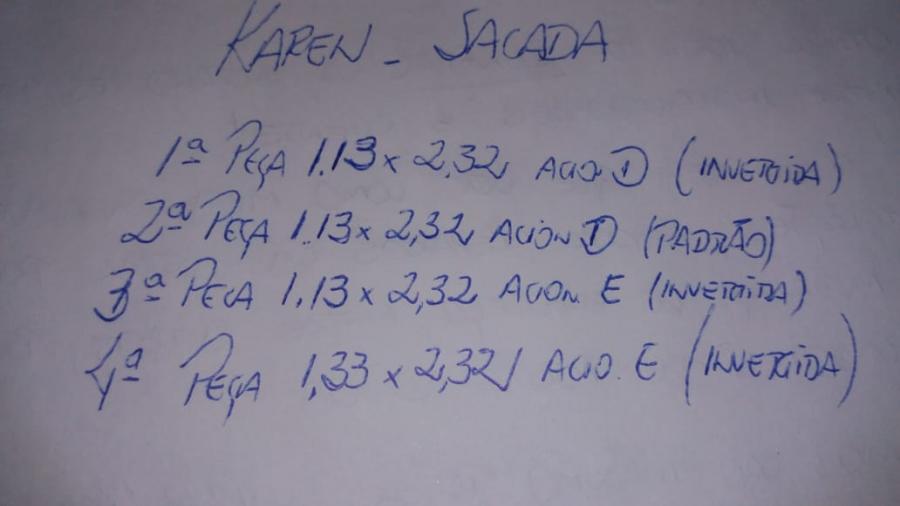 KAREN - SACADA
1ª PEÇA 1.13 x 2,32 ACION. D (INVERTIDA)
2ª PEÇA 1.13 x 2,32 ACION D (PADRÃO)
3ª PEÇA 1.13 x 2,32 ACION. E (INVERTIDA)
4ª PEÇA 1,33 x 2,32 ACIO. E (INVERTIDA)